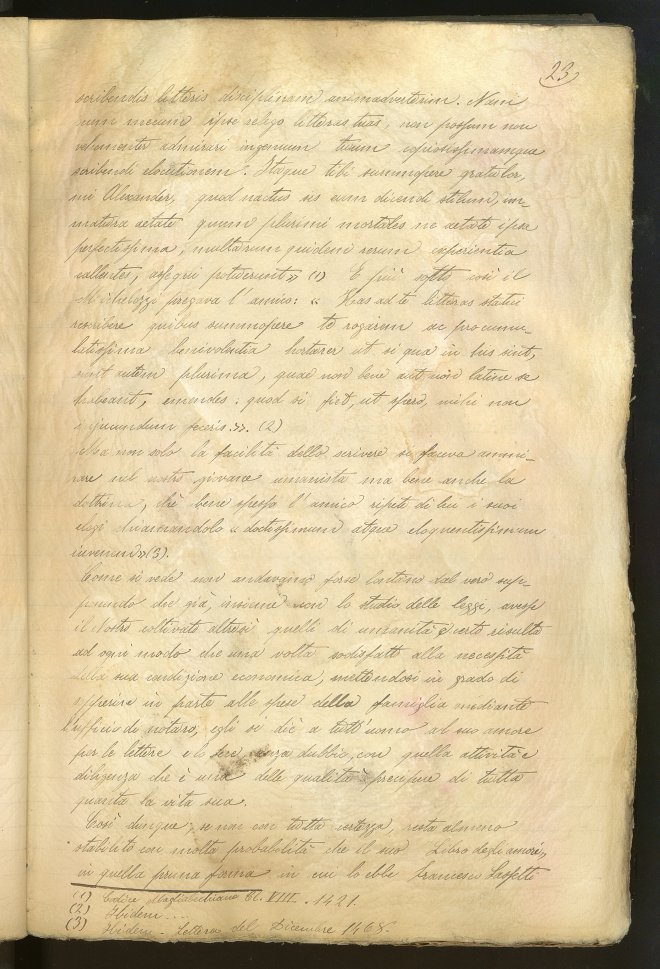 23
scribendis litteris disciplinam animadverterim. Nam
quum mecum ipse relego litteras tuas, non possum non
vehementer admirari ingenium tuum copiosissimamque
scribendi elocutionem. Itaque tibi summopere gratulor,
mi Alexander, quod nactus sis eum dicendi stilum, im-
matura aetate quem plurimi mortales ne aetate ipsa
perfectissima, multarum quidem rerum experientia
callentes, assequi potuerunt» (1) E più sotto così il
Michelozzi pregava l'amico: « Has ad te litteras statui
rescribere quibus summopere te rogarem ac pro cumu-
latissima benivolentia hortarer ut si qua in his sint,
sunt autem plurima, quae non bene aut non latine se
habeant, emendes: quod si fiet, ut spero, mihi non
iniquundum feceris.». (2)
Ma non solo la facilità dello scrivere si faceva ammi-
rare nel nostro giovane umanista ma bene anche la
dottrina, chè bene spesso l'amico ripete di lui i suoi
elogi chiamandolo « doctissimum atque eloquentissimum
iuvenem»(3).
Come si vede non andavamo forse lontano dal vero sup-
ponendo che già, insieme con lo studio delle leggi, avesse
il Nostro coltivato altresì quelli di umanità e certo risulta
ad ogni modo che una volta sodisfatto alla necessità
della sua condizione economica, mettendosi in grado di
sopperire in parte alle spese della famiglia mediante
l'ufficio di notaro, egli si diè a tutt'uomo al suo amore
per le lettere e lo fece, senza dubbio, con quella attività e
diligenza che è una delle qualità precipue di tutta
quanta la vita sua.
Così dunque, se non con tutta certezza, resta almeno
stabilito con molta probabilità che il suo Libro degli amori,
in quella prima forma in cui lo ebbe Francesco Sassetti
(1) Codice Magliabechiano Cl. VIII. 1421.
(2) Ibidem ....
(3) Ibidem - Lettera del Dicembre 1468.